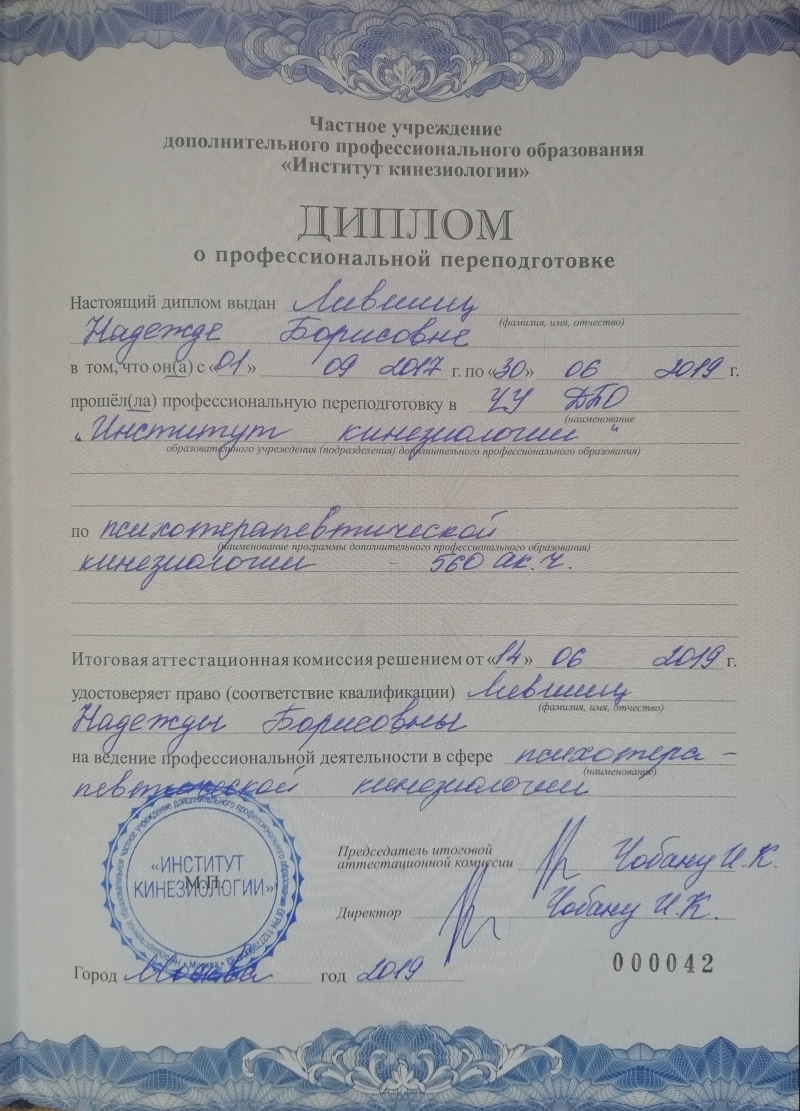 Частное учреждение
дополнительного профессионального образования
«Институт кинезиологии»
ДИПЛОМ
о профессиональной переподготовке
Настоящий диплом выдан Лившиц
(фамилия, имя, отчество)
Надежде Борисовне
в том, что он(а) с «01» 09 2017 г. по «30» 06 2019 г.
прошёл(ла) профессиональную переподготовку в ЧУ ДПО
(наименование
"Институт кинезиологии"
образовательного учреждения (подразделения) дополнительного профессионального образования)
по психотерапевтической
(наименование программы дополнительного профессионального образования)
кинезиологии - 560 ак.ч.
Итоговая аттестационная комиссия решением от «14» 06 2019 г.
удостоверяет право (соответствие квалификации) Лившиц
(фамилия, имя, отчество)
Надежды Борисовны
на ведение профессиональной деятельности в сфере психотера-
(наименование)
певтической кинезиологии
«ИНСТИТУТ
КИНЕЗИОЛОГИИ»
М.П.
Председатель итоговой
аттестационной комиссии Чобану И.К.
Директор Чобану И.К.
Город Москва год 2019
000042